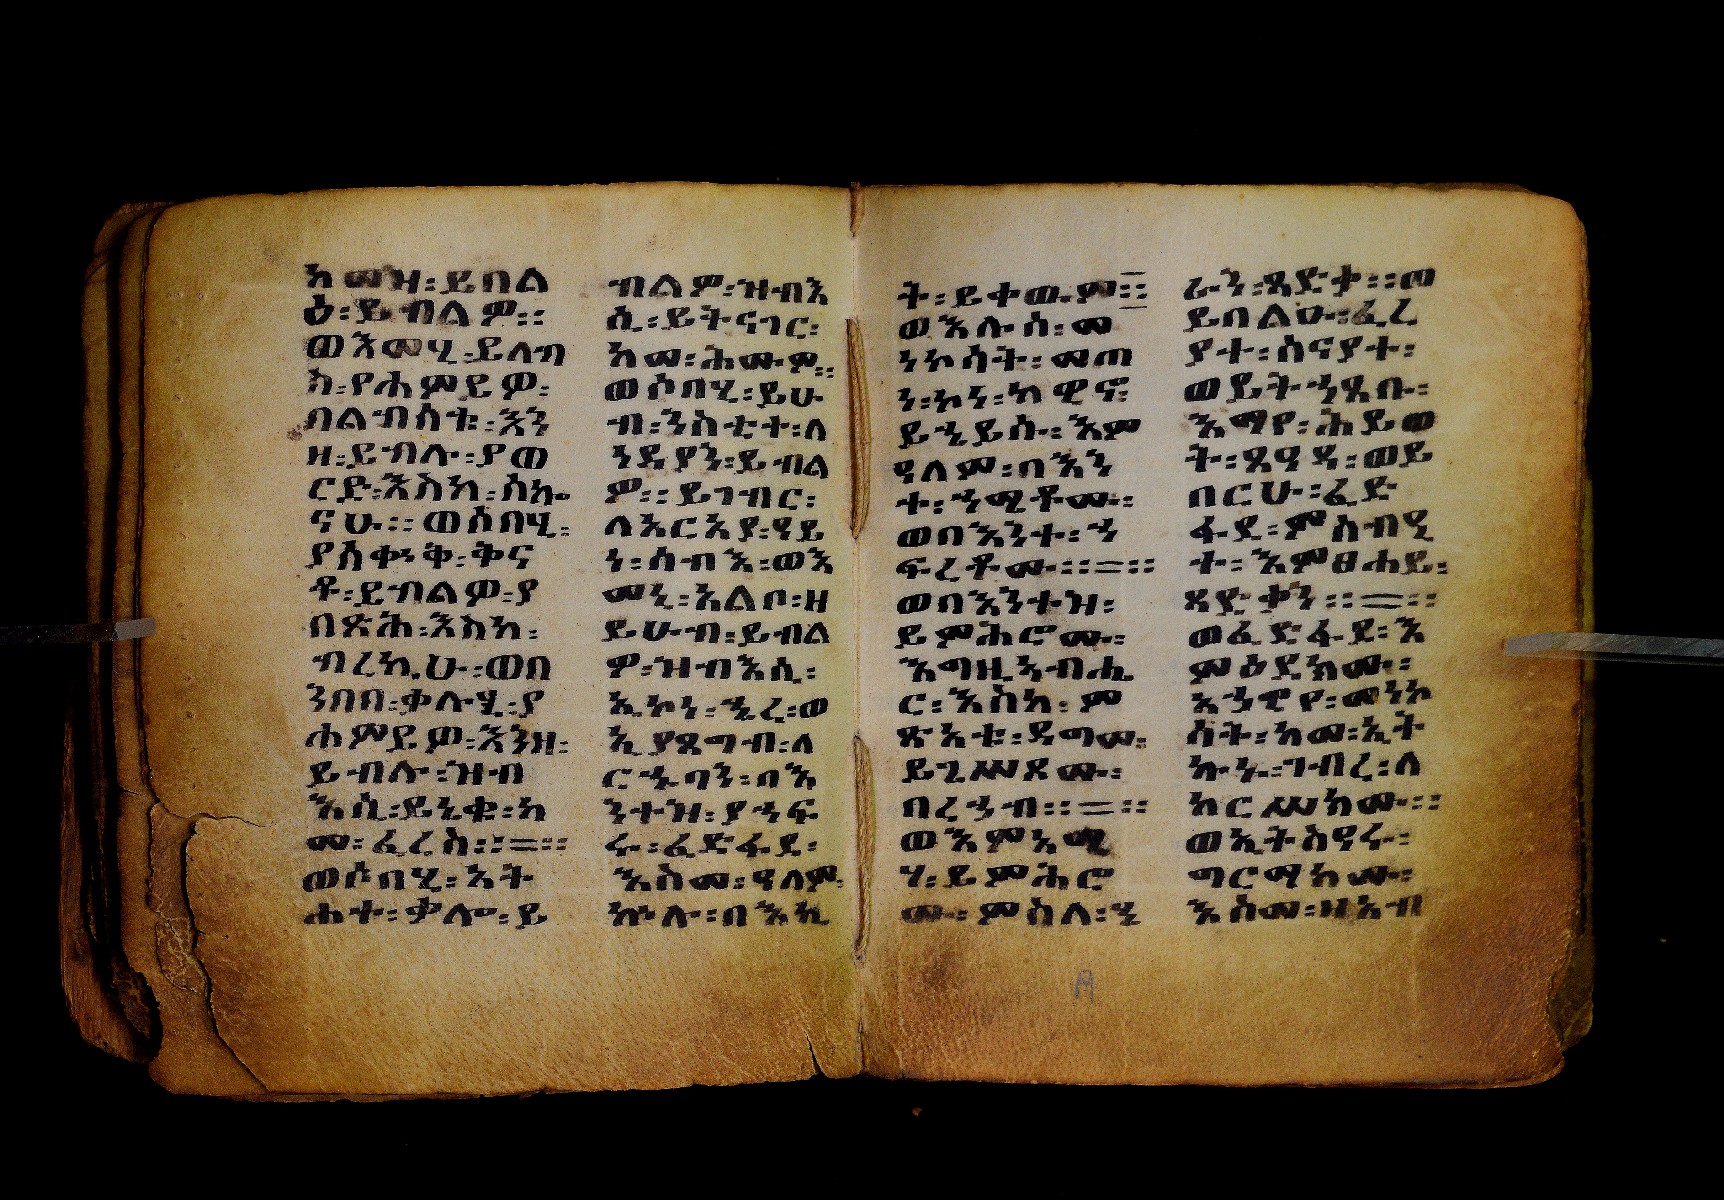 አመዝ፡ይበል
ዕ፡ይብልዎ።
ወእመሂ፡ይለብ
ካ፡የሐምይዎ፡
በልብሰቱ፡እን
ዘ፡ይብሉ፡ያወ
ርድ፡እስከ፡ሰኰ
ናሁ።ወሰበሂ፡
ያስቀንቅ፡ቅና
ቶ፡ይብልዎ፡ያ
በጽሕ፡እስከ፡
ብረኪሁ፡ወበ
ንበበ፡ቃሉሂ፡ያ
ሐምይዎ፡እንዘ፡
ይብሉ፡ዝብ
እሲ፡ይነቁ፡ከ
መ፡ፈረስ።=።
ወሶበሂ፡አት
ሐተ፡ቃሎ፡ይ
ብልዎ፡ዝብእ
ሲ፡ይትናገር፡
ከመ፡ሕሙም።
ወሶበሂ፡ይሁ
ብ፡ንስቲተ፡ለ
ነዳያን፡ይብል
ዎ።ይገብር፡
ለአርአያ፡ዓይ
ነ፡ሰብእ፡ወእ
መኒ፡አልቦ፡ዘ
ይሁብ፡ይብል
ዎ፡ዝብእሲ፡
ኢኮነ፡ኄረ፡ወ
ኢያጸግብ፡ለ
ርኁባን፡በእ
ንተዝ፡ያኅፍ
ሩ፡ፈድፋደ፡
እስመ፡ዓለም፡
ኵሉ፡በእኪ
ት፡ይተወም።
ወእሉሰ፡መ
ነኮሳት፡መጠ
ነ፡ኮነ፡ከዊኖ፡
ይኄይሱ፡እም
ዓለም፡በእን
ተ፡ኂሩቶሙ፡
ወበእንተ፡ኅ
ፍረቶሙ።=።
ወበእንተዝ፡
ይምሕሮሙ፡
እግዚአብሔ
ር፡እስከ፡ም
ጽአቱ፡ዳግመ፡
ይጌሥጾሙ፡
በረኅብ።=።
ወእምአሜ
ሃ፡ይምሕሮ
ሙ፡ምስለ፡ኄ
ራን፡ጻድቃ።ወ
ይበልሁ፡ፈረ
ያተ፡ሰናያተ፡
ወይትኀጸቡ፡
እማየ፡ሕይወ
ት፡ጸዓዳ፡ወይ
በርሁ፡ፈድ
ፋደ፡ምስብዒ
ተ፡እምፀሐይ፡
ጻድቃን።=።
ወፈድፋደ፡እ
ምዕደከሙ፡
አኀዊየ፡መነኮ
ሳት፡ከመ፡ኢት
ኩኑ፡ገብረ፡ለ
ከርሥከሙ።
ወኢትስዓሩ፡
ግርማከሙ፡
እስመ፡ዘአብ